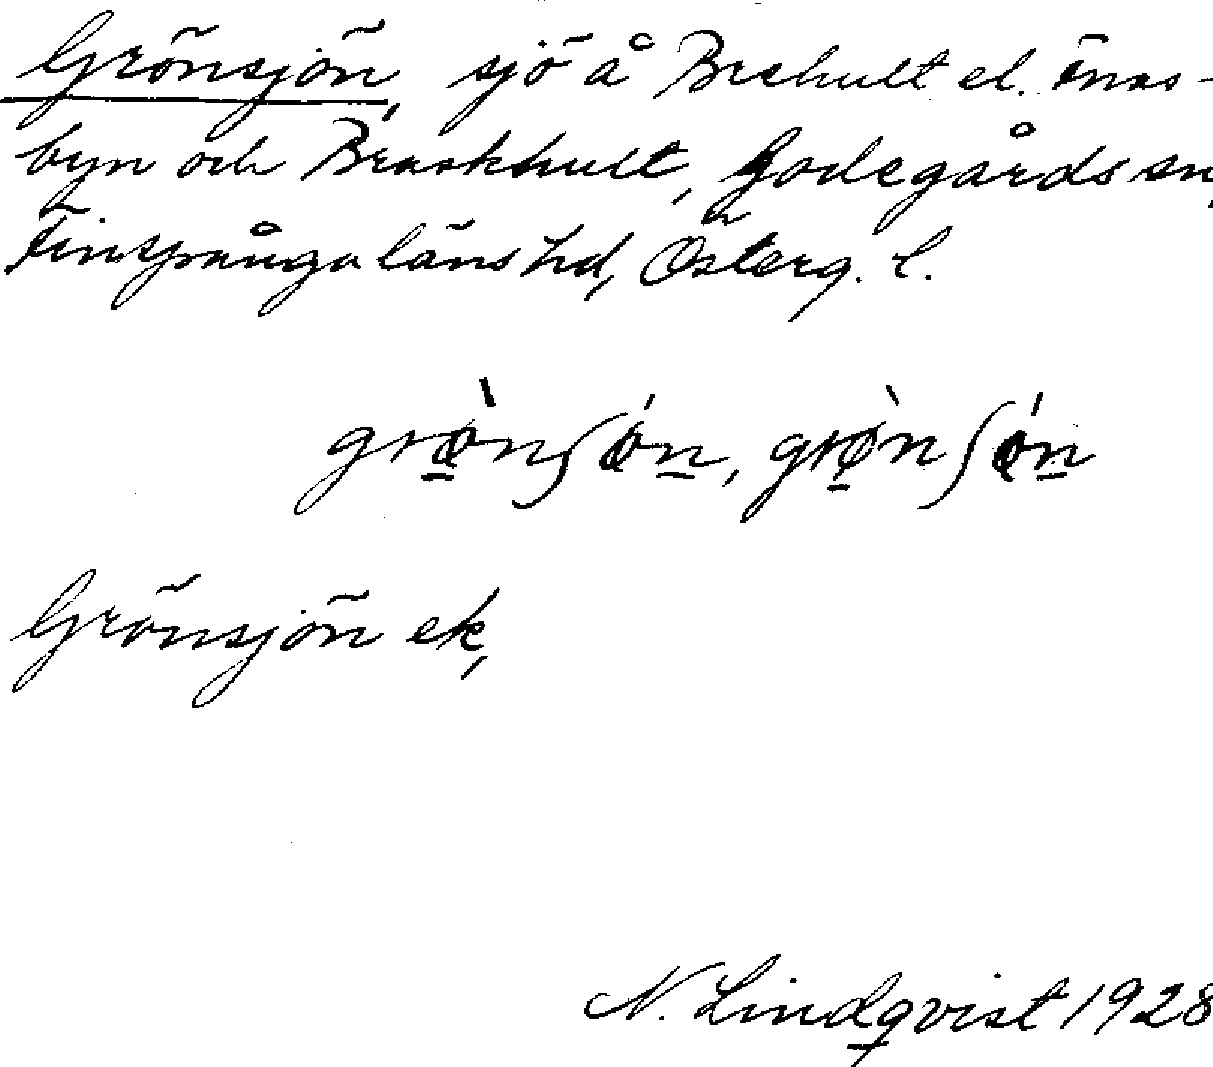 Grönsjön, sjö å Brehult el. Önas-
byn och Braskhult, Godegårds sn,
Finspånga läns hd, Österg. l.
grø̀nʃǿn, grø̀nʃǿn
Grönsjön ek,
N. Lindqvist 1928